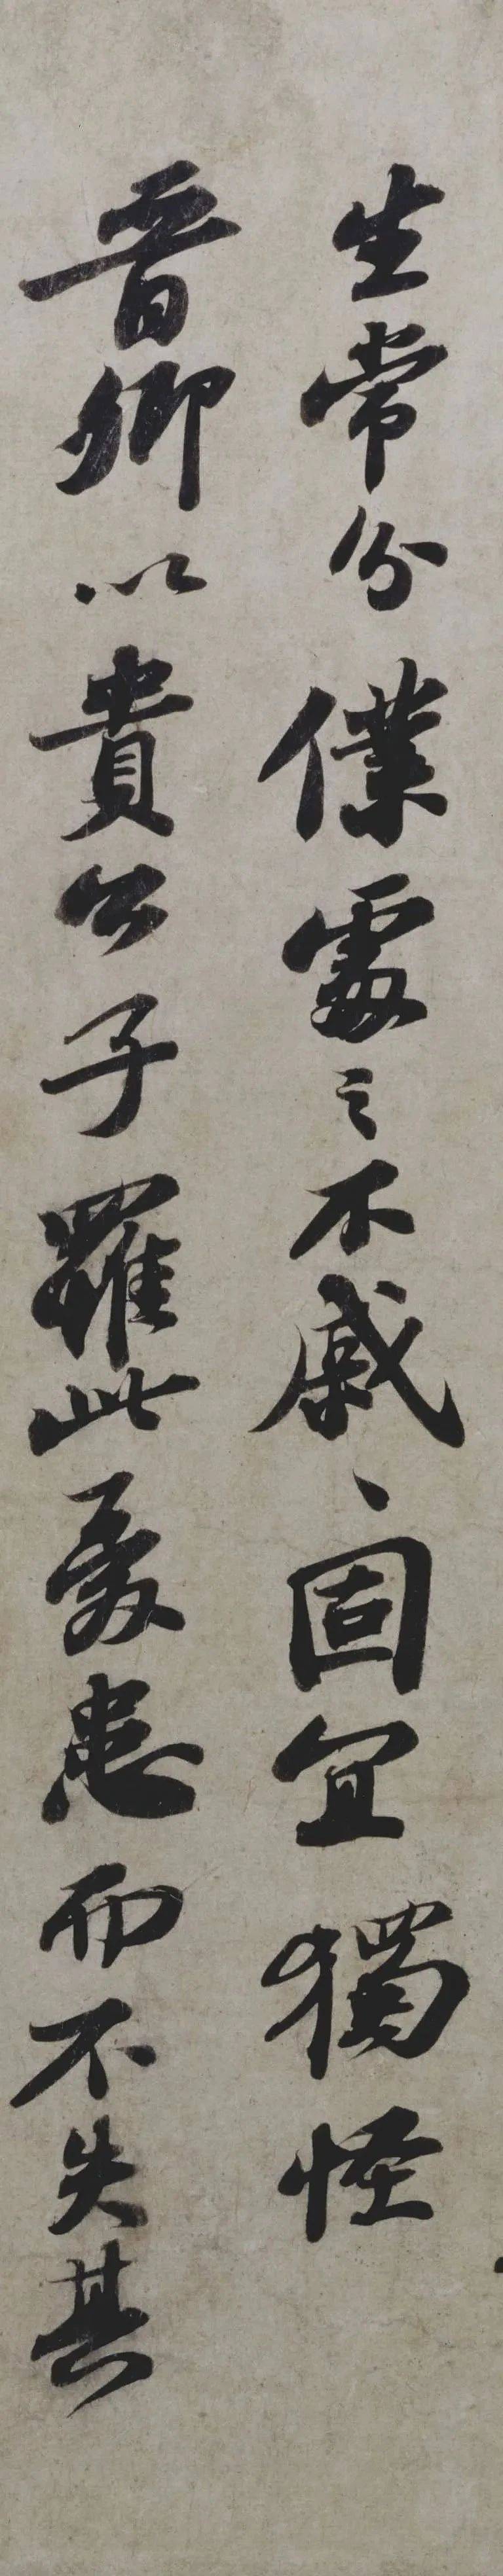 生常分僕處之不戚〻固宜獨怪
晉卿以貴公子罹此憂患而不失其